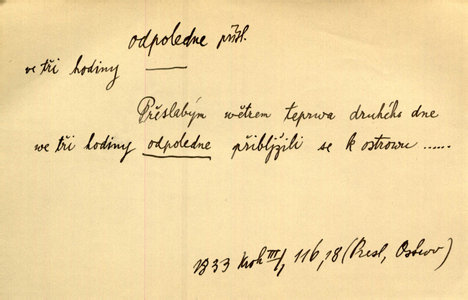 odpoledne přísl.
we tři hodiny ——
Přeslabým wětrem teprwa druhého dne
we tři hodiny odpoledne přibljžili se k ostrowu ......
1833 Krok III/1, 116,18 (Presl, Ostrov)